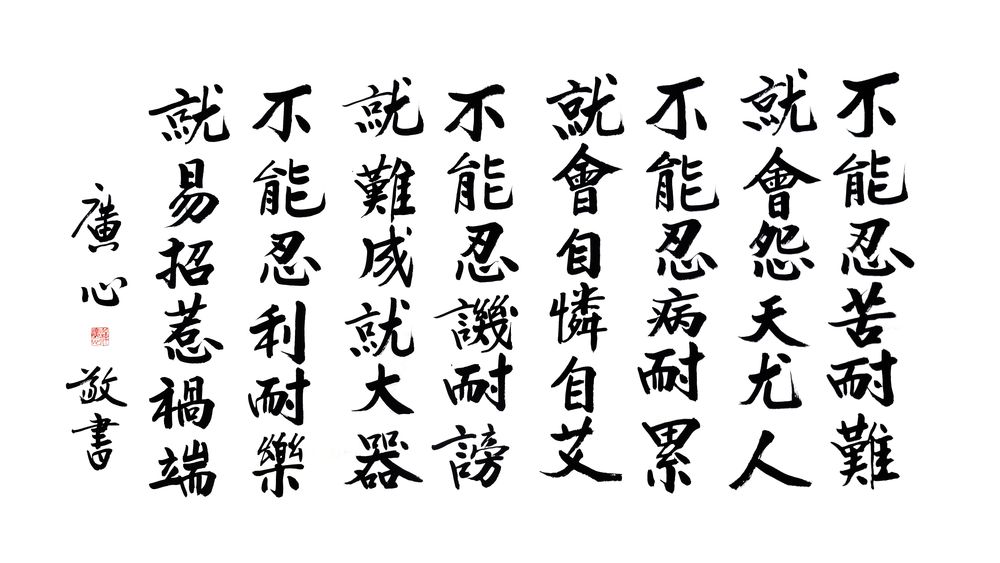 不能忍苦耐難
就會怨天尤人
不能忍病耐累
就會自憐自艾
不能忍譏耐謗
就難成就大器
不能忍利耐樂
就易招惹禍端
廣心 敬書